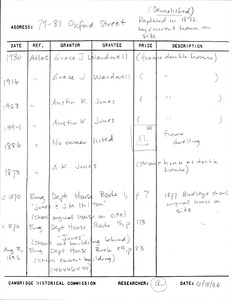 (Demolished)
ADDRESS: 79-81 Oxford Street
Replaced in 1892
by current house on
site
DATE REF. GRANTOR GRANTEE PRICE DESCRIPTION
1930 Atlas Grace J Wardwell (frame double house)
1916 " Grace J Wardwell ( " )
1903 " Austin K Jones ( " )
" Austin K Jones ( " )
1886 " No owner listed frame
dwelling
1873 " A K Jones house as double
house)
c1870 Eng Dept House Book p 7 1877 Birdseye shows
"Jones & J.M. original house on
(shows original house on site) site
c.1870 Eng Dept House Book p
"Jones"
(shows building)
Aug Eng Dept House Book p 23
(shows current building)
CAMBRIDGE HISTORICAL COMMISSION RESEARCHER: DATE: